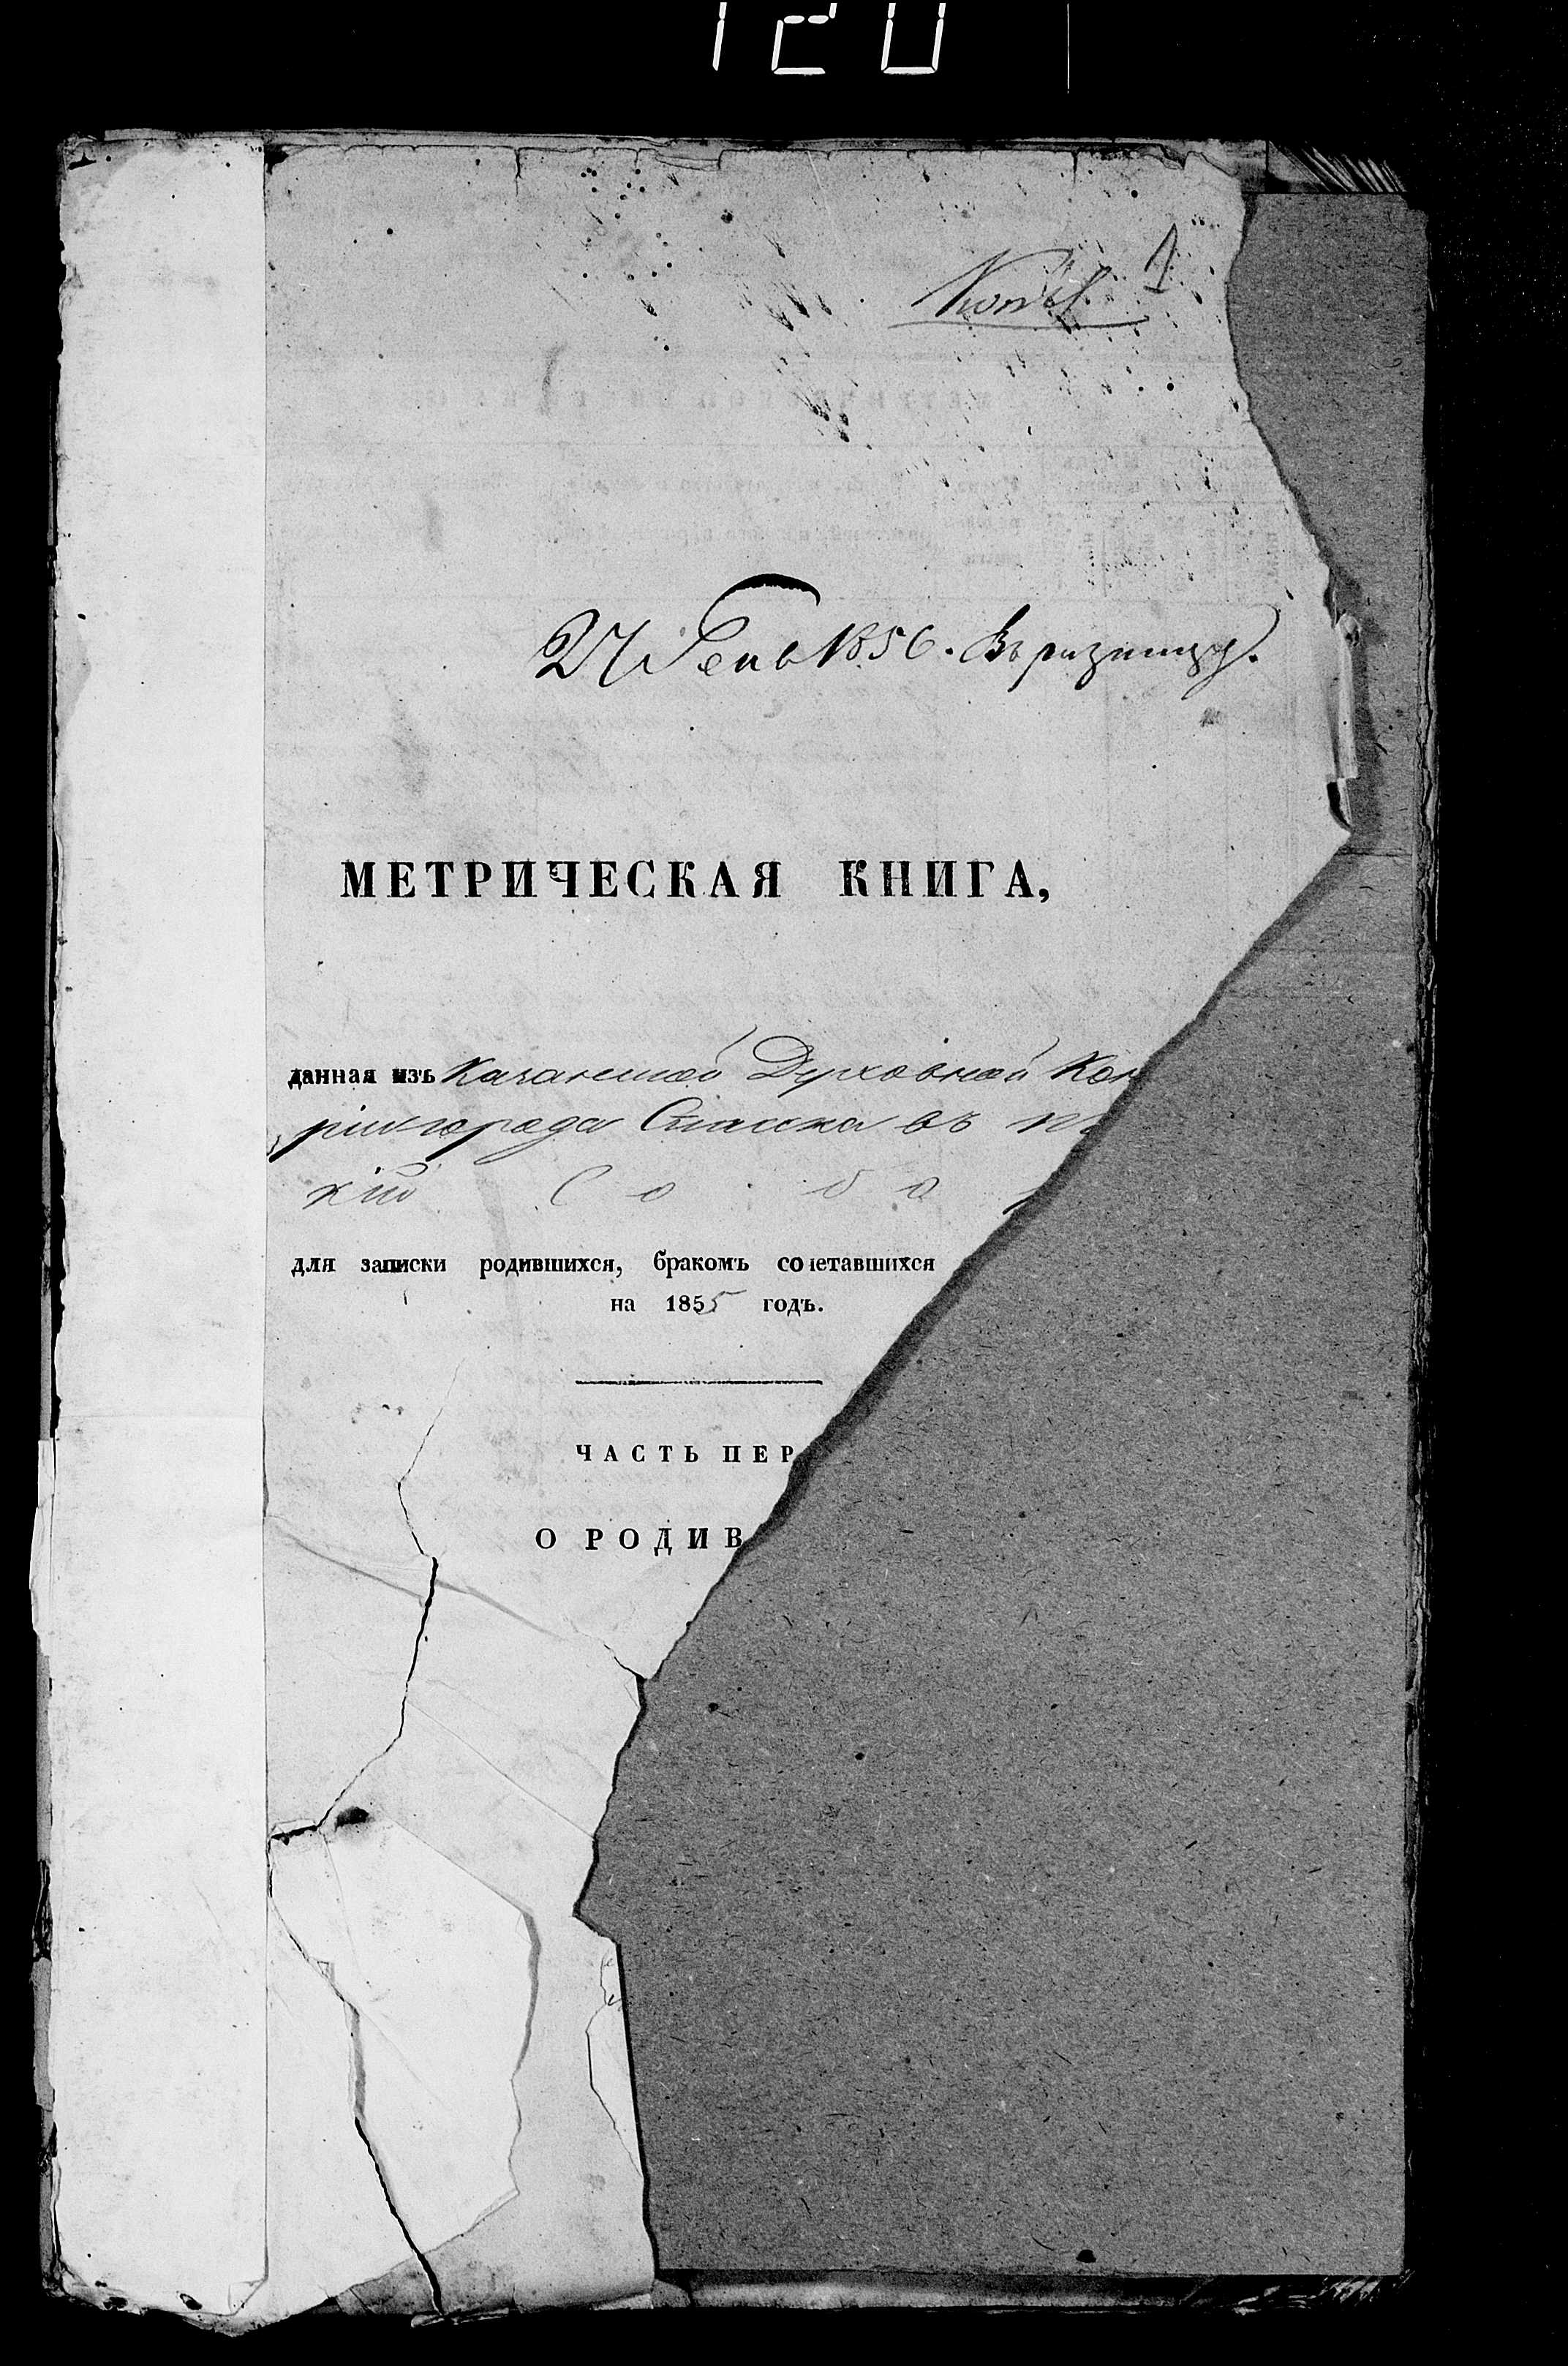 120
1
Копія
27 Генв 1856. Въ ризницу.
МЕТРИЧЕСКАЯ КНИГА,
данная изъ Казанской Духовной Кон
ріи города Спасска въ
кій Собо
для записки родившихся, бракомъ сочетавшихся
на 1855 годъ.
ЧАСТЬ ПЕР
О РОДИВ